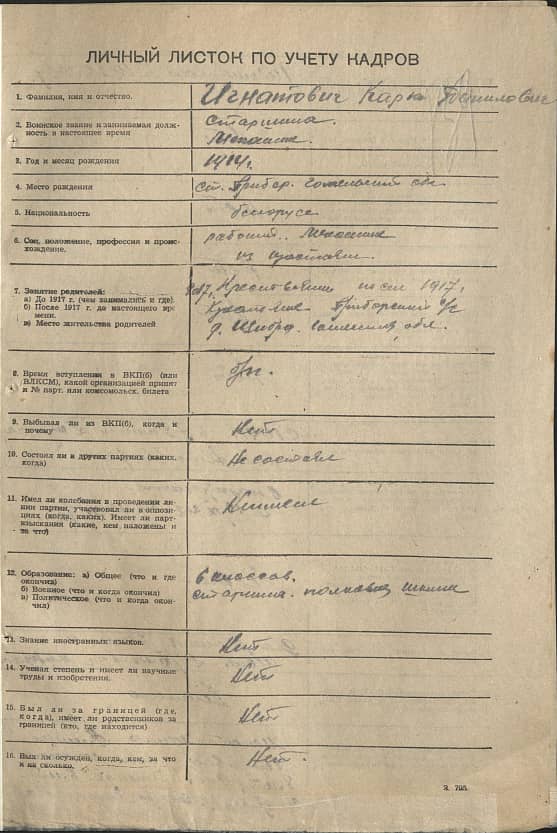 ЛИЧНЫЙ ЛИСТОК ПО УЧЕТУ КАДРОВ
1. Фамилия, имя и отчество.
Игнатович Карп
2. Воинское звание и занимаемая долж-
ность в настоящее время
Старшина.
Механик.
3. Год и месяц рождения
1914г.
4. Место рождения
ст. Прибор. Гомельский обл.
5. Национальность
белорусс
6. Соц. положение, профессия и проис-
хождение.
рабочий. Механик
из крестьян.
7. Занятие родителей:
а) До 1917 г. (чем занимались и где).
б) После 1917 г. до настоящего вре
мени.
в) Место жительства родителей
1917г.
Крестьяне Приборский с/с
д. обл.
8. Время вступления в ВКП(б) (или
ВЛКСМ), какой организацией принят
и № парт. или комсомольск. билета
б/п.
9. Выбывал ли из ВКП(б), когда и
почему
Нет
10. Состоял ли в других партиях (каких,
когда)
Не состоял
11. Имел ли колебания в проведении ли-
нии партии, участвовал ли в оппози-
циях (когда, каких). Имеет ли парт-
взыскания (какие, кем наложены и
за что)
Не имел
12. Образование: а) Общее (что и где
окончил)
б) Военное (что и когда окончил)
в) Политическое (что и когда окон-
чил)
6 классов.
старшина. полковая школа
13. Знание иностранных языков.
Нет
14. Ученая степень и имеет ли научные
труды и изобретения.
Нет
15. Был ли за границей (где,
когда), имеет ли родственников за
границей (кто, где находится)
Нет
16. Был ли осужден, когда, кем, за что
и на сколько.
Нет.
З. 795.